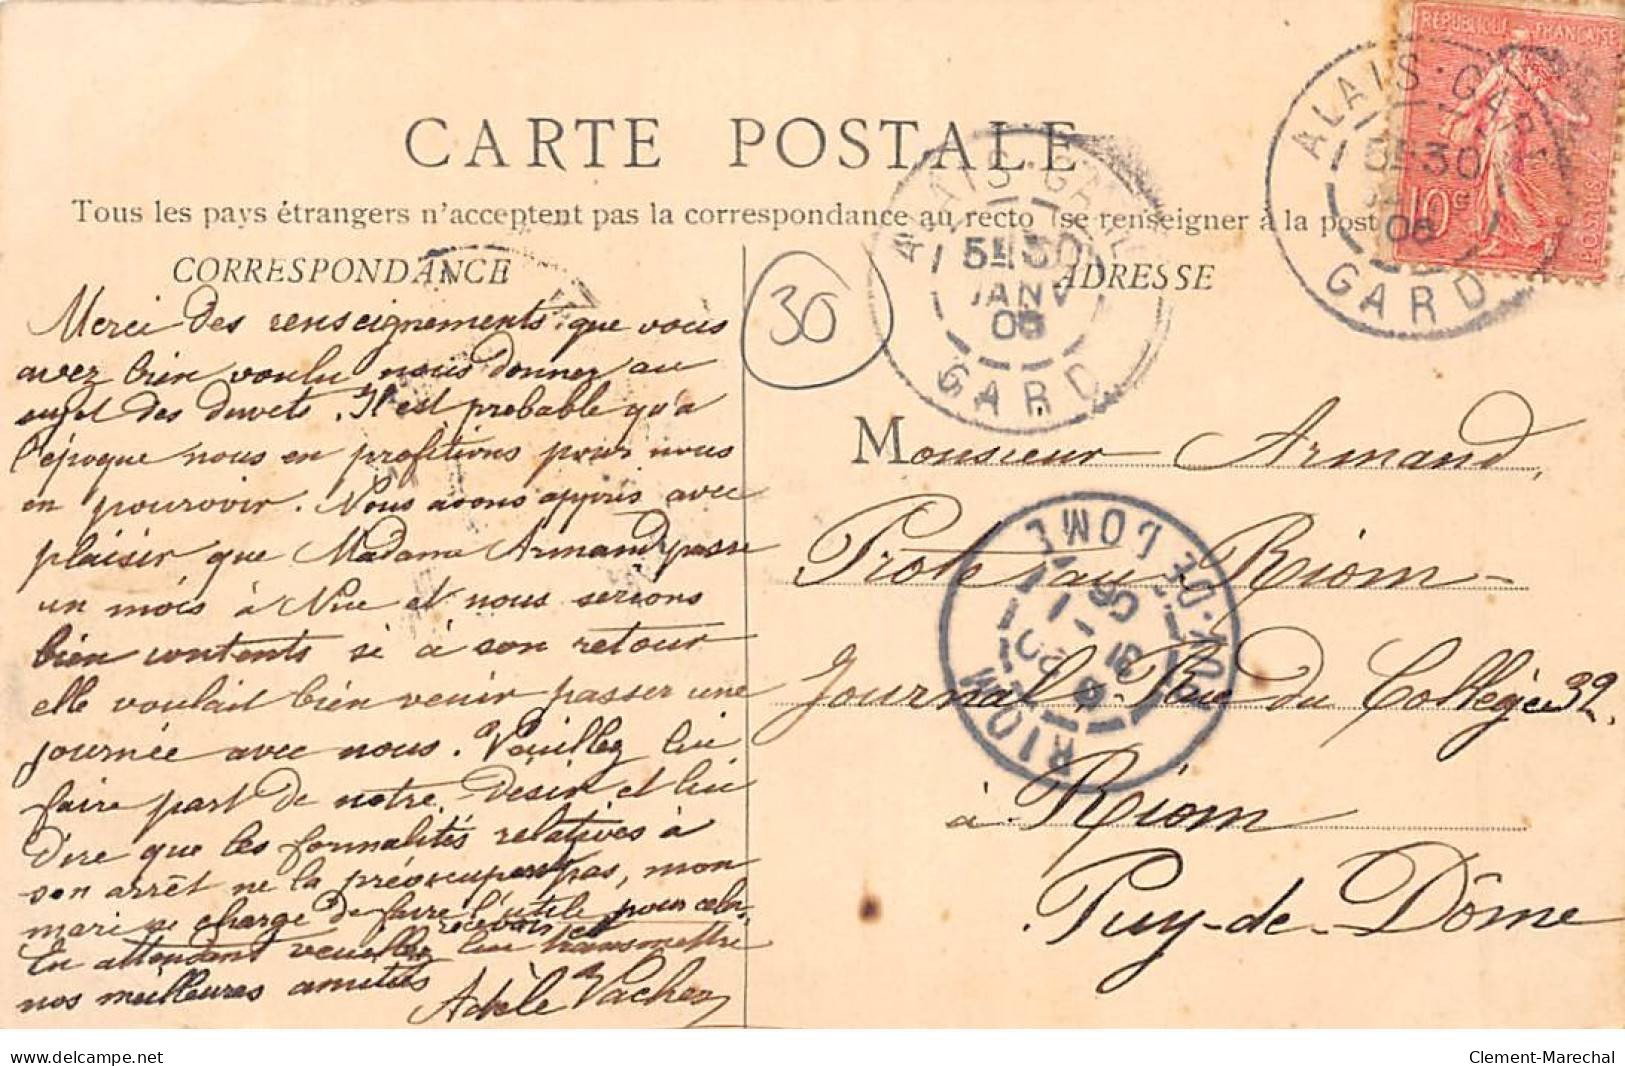 CARTE POSTALE
Tous les pays étrangers n'acceptent pas la correspondance au recto (se renseigner à la post
CORRESPONDANCE
ADRESSE
Merci des renseignements que vous
avez bien voulu nous donner au
sujet des duvets. Il est probable qu'à
l'époque nous en profitions pour nous
en pourvoir. Nous avons appris avec
plaisir que Madame Armand passe
un mois à Nice et nous serions
bien contents si à son retour
elle voulait bien venir passer une
journée avec nous. Veuillez lui
faire part de notre désir et lui
dire que les formalités relatives à
son arrêt ne la préoccupent pas, mon
mari se charge de faire l'utile pour cela.
En attendant veuillez recevoir et
lui transmettre
nos meilleures amitiés
Adèle Vacher
30
Monsieur Armand,
Prote au Riom-
Journal, Rue du Collège 32.
à Riom
Puy-de-Dôme
RÉPUBLIQUE FRANÇAISE
10c
POSTES
ALAIS-GARE
5H30
JANV
06
GARD
ALAIS-GARE
5H30
06
GARD
RIOM
PUY-DE-DOME
31
1
06
delcampe.net
Clement-Marechal